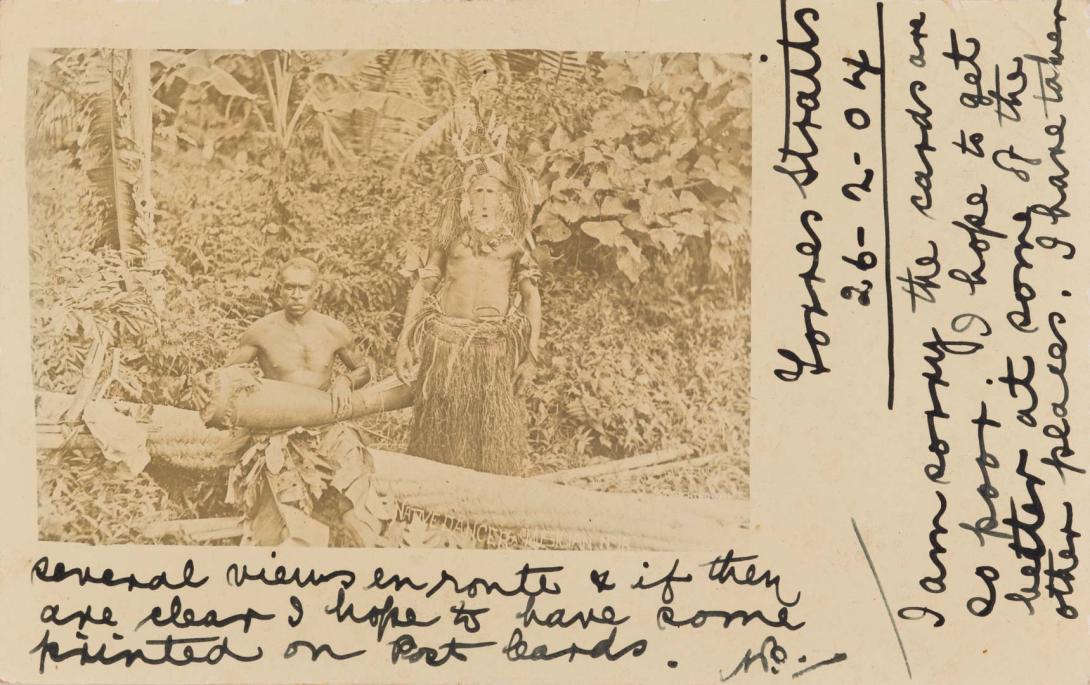 Torres Straits
26-2-04
I am sorry the cards are
so poor. I hope to get
better at some of the
other places. I have taken
several views en route & if they
are clear I hope to have some
printed on Post Cards.
NATIVE DANCER & MUSICIAN